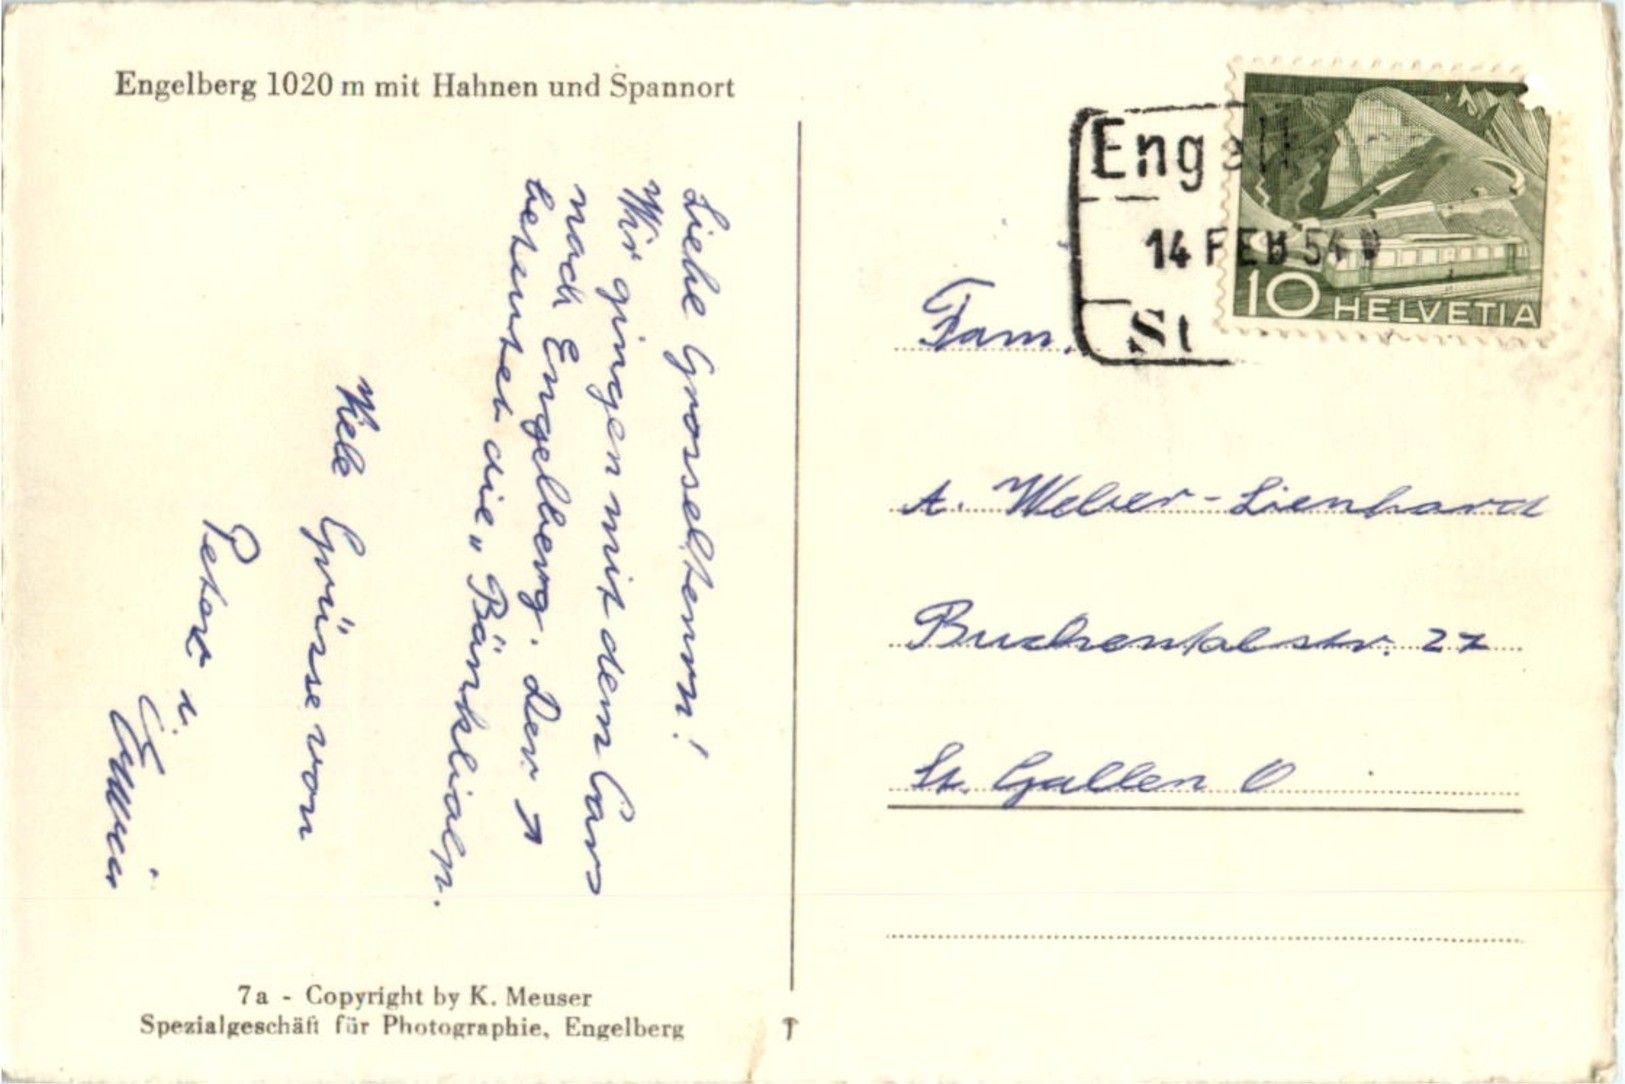 Engelberg 1020 m mit Hahnen und Spannort
Liebe Grosseltern!
Wir gingen mit dem Cars
nach Engelberg. Der ↗
beteutet die „Bänklialp.
Viele Grüsse von
Peter u.
Erwin
7a - Copyright by K. Meuser
Spezialgeschäft für Photographie, Engelberg
Engelb
14 FEB 54
St
10 HELVETIA
Fam.
A. Weber-Lienhard
Buchentalstr. 27
St. Gallen O